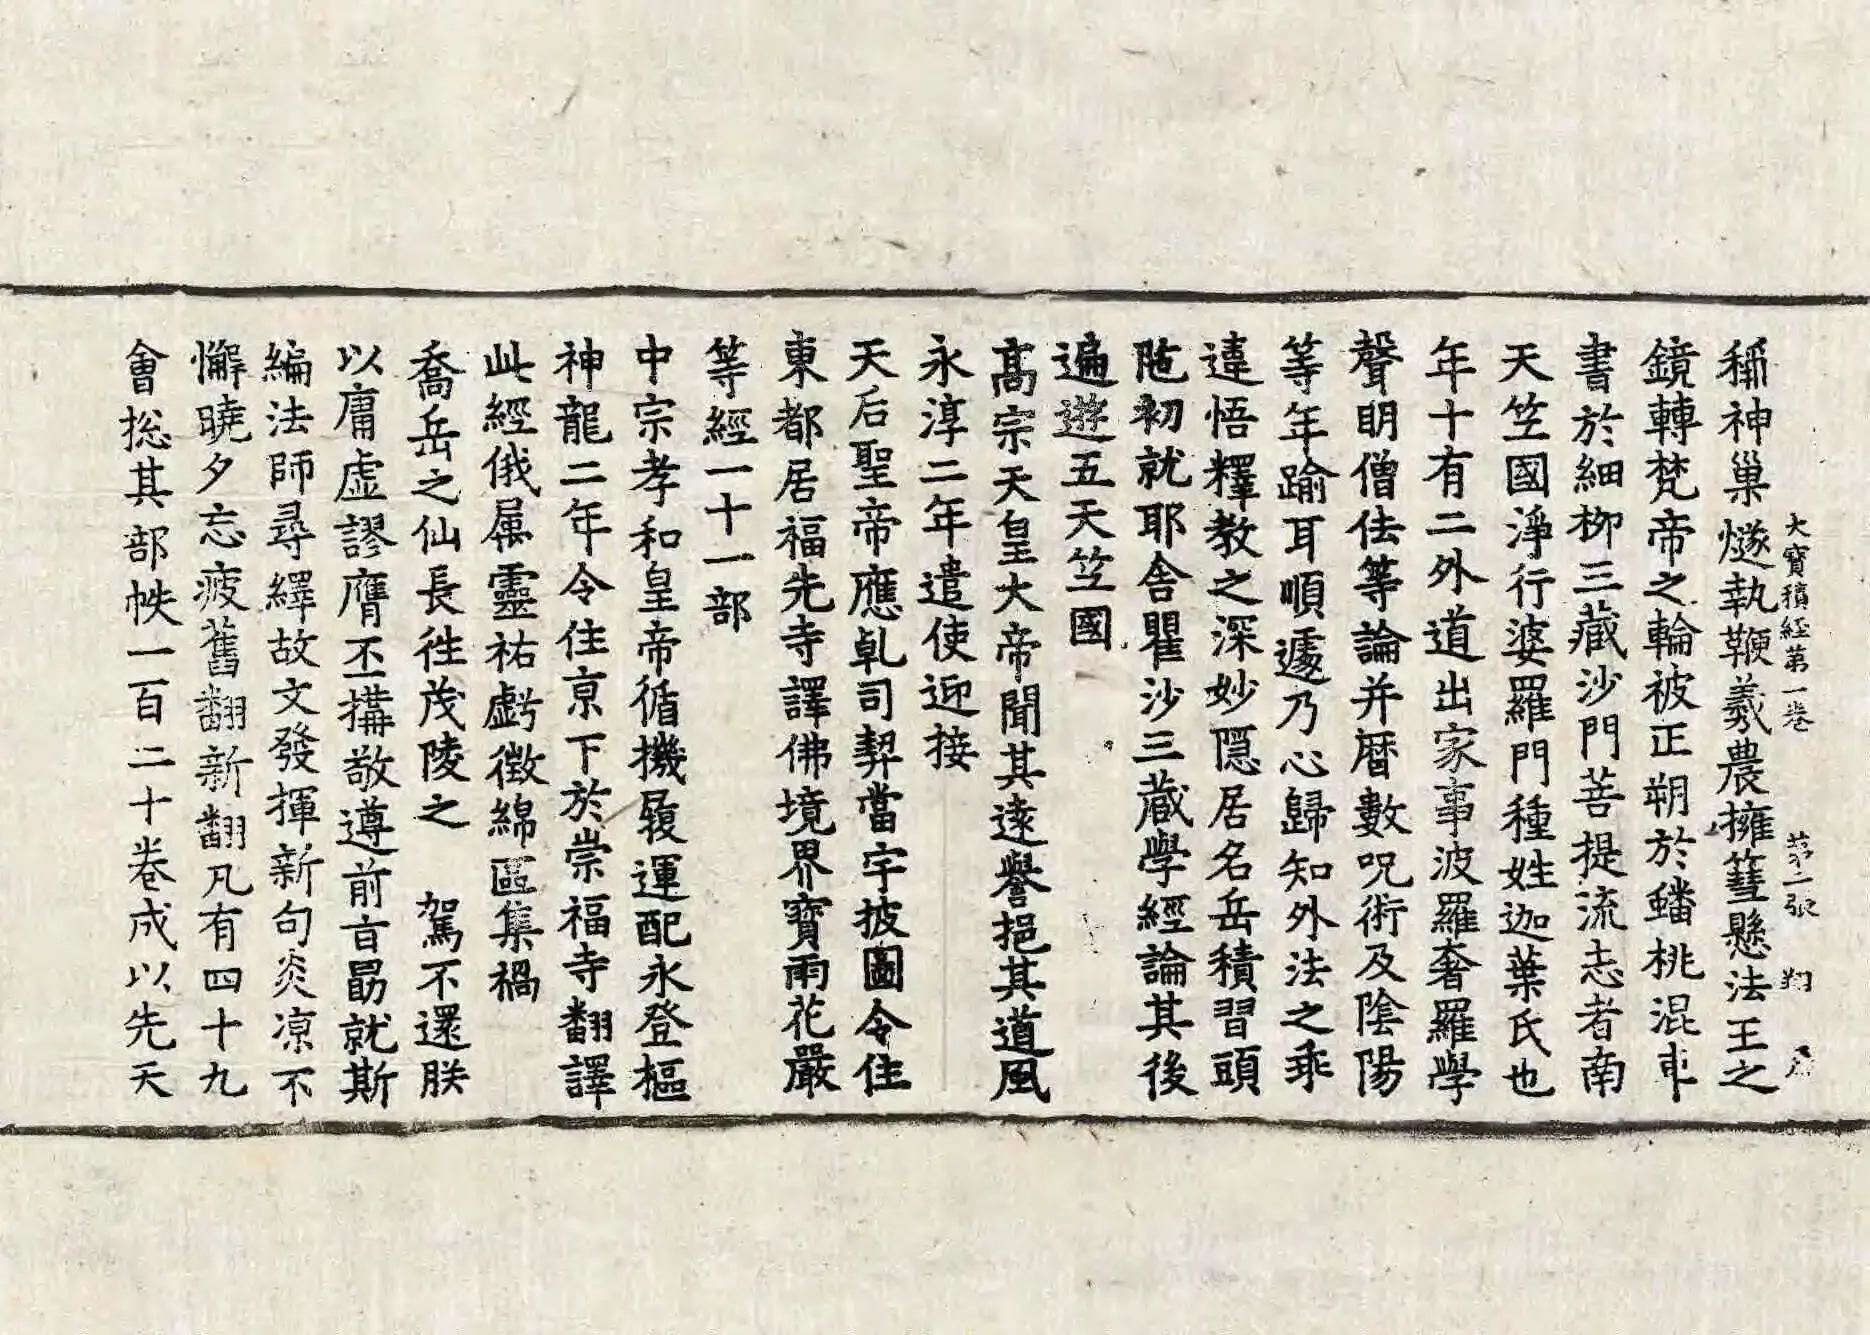 大寶積經第一卷 第二張 翔
稱神巢燧執鞭羲農擁篲懸法王之
鏡轉梵帝之輪被正朔於蟠桃混車
書於細柳三藏沙門菩提流志者南
天竺國淨行婆羅門種姓迦葉氏也
年十有二外道出家事波羅奢羅學
聲明僧佉等論并曆數呪術及陰陽
等年踰耳順遽乃心歸知外法之乖
違悟釋教之深妙隱居名岳積習頭
陁初就耶舍瞿沙三藏學經論其後
遍遊五天竺國
高宗天皇大帝聞其遠譽挹其道風
永淳二年遣使迎接
天后聖帝應乹司契當宇披圖令住
東都居福先寺譯佛境界寶雨花嚴
等經一十一部
中宗孝和皇帝循機履運配永登樞
神龍二年令住京下於崇福寺翻譯
此經俄屬靈祐虧徵綿區集禍
喬岳之仙長往茂陵之 駕不還朕
以庸虛謬膺丕搆敬遵前旨勗就斯
編法師尋繹故文發揮新句炎凉不
懈曉夕忘疲舊翻新翻凡有四十九
會捴其部帙一百二十卷成以先天